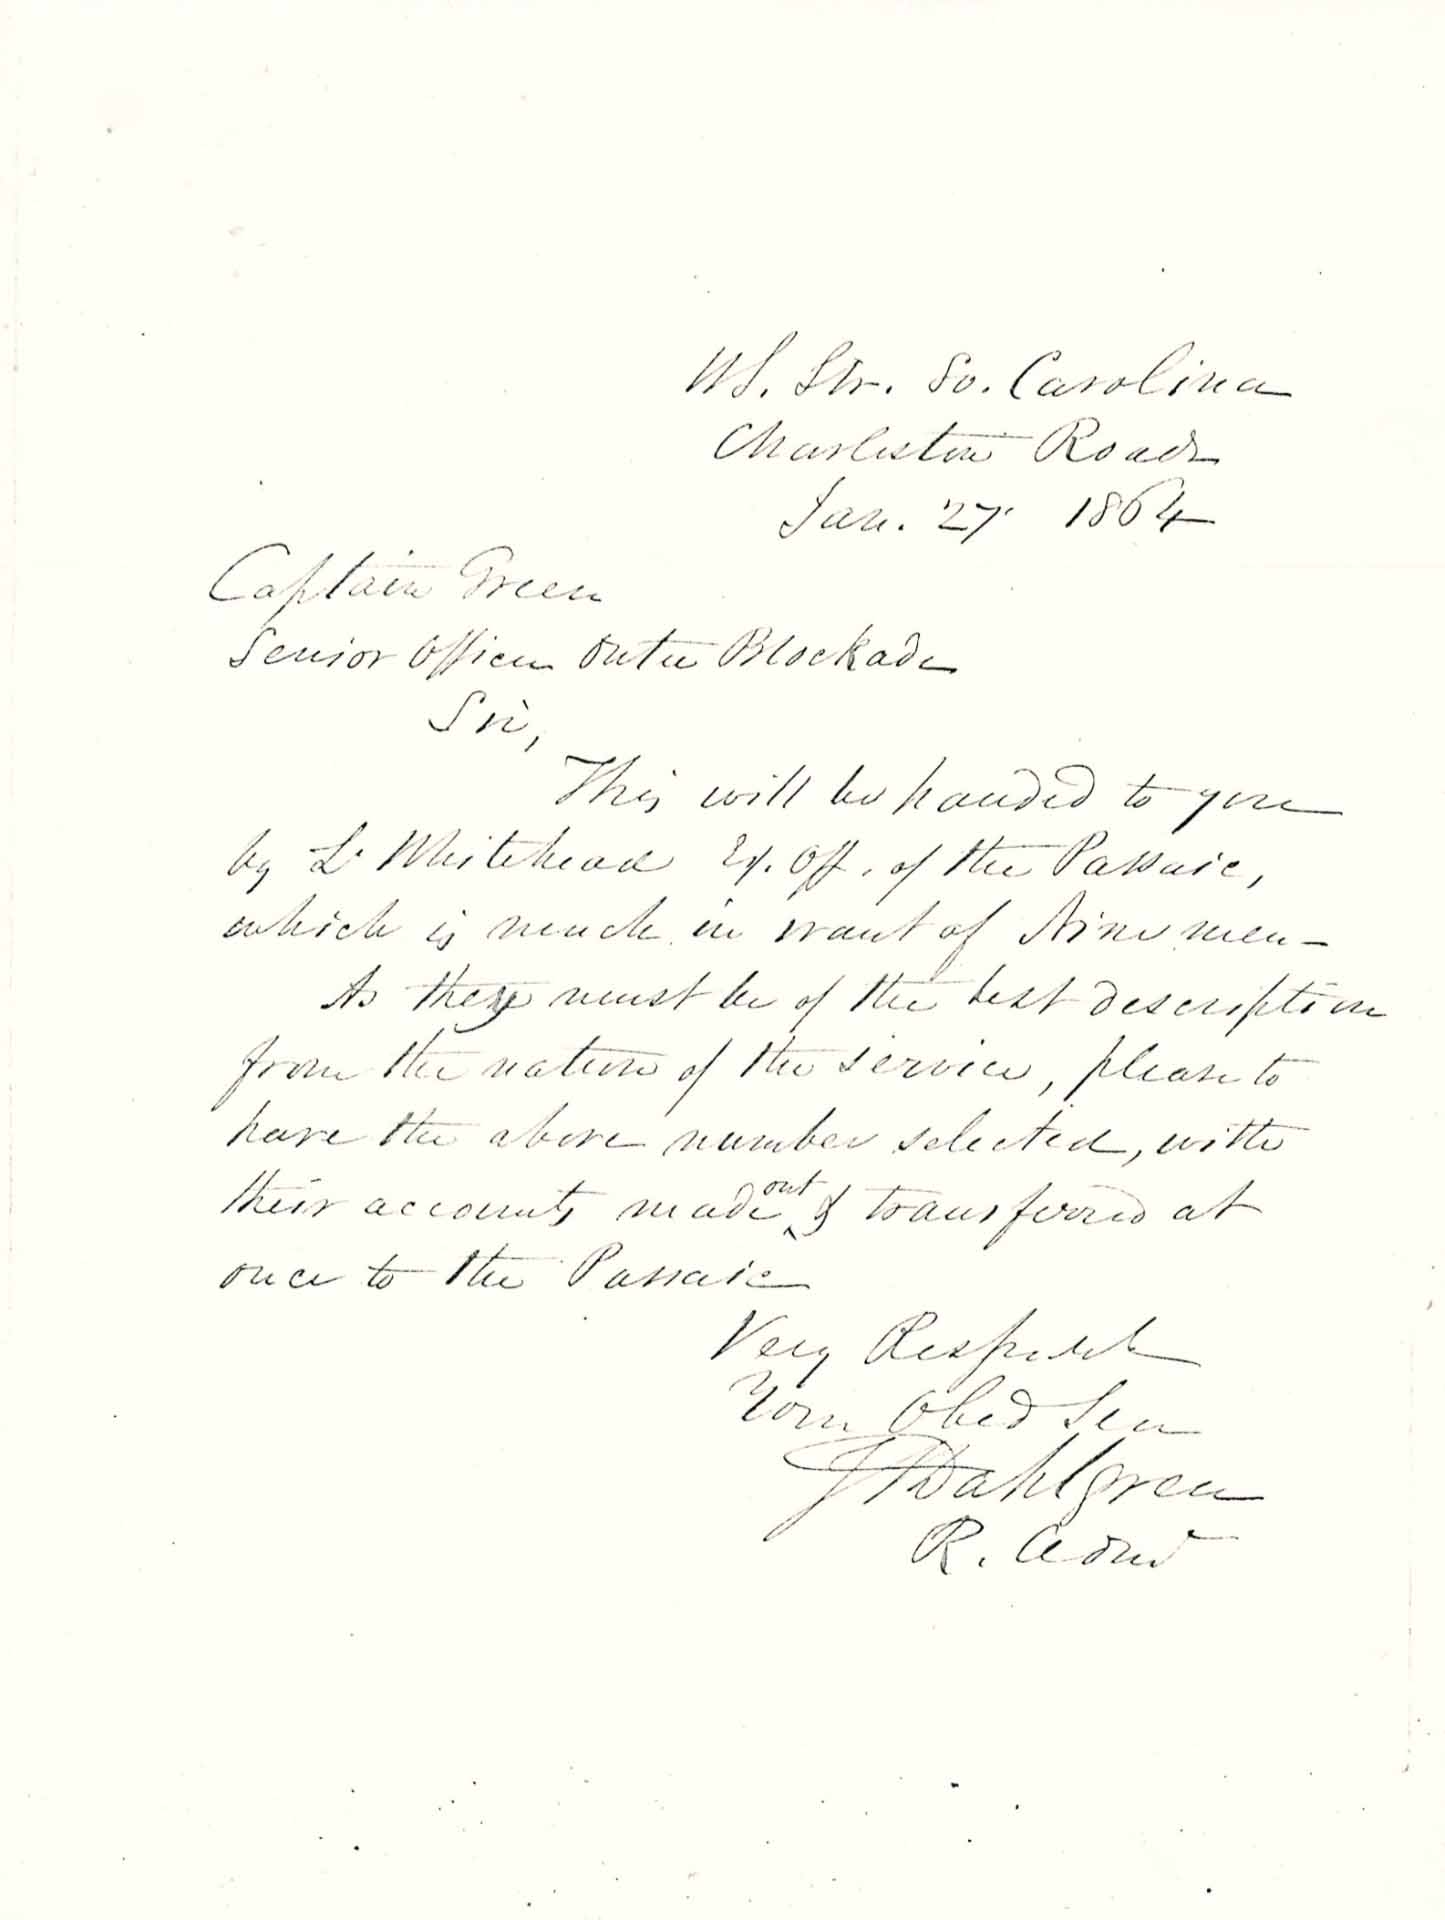 US. Str. So. Carolina
Charleston Roads
Jan. 27 1864
Captain Green
Senior Officer Outer Blockade
Sir,
This will be handed to you
by Lt Whitehead Ex. Off. of the Passaic,
which is much in want of Nine men -
As they must be of the best description
from the nature of the service, please to
have the above number selected, with
their accounts made out & transferred at
once to the Passaic
Very Respect
Your Obed Ser
J A Dahlgren
R. Adml